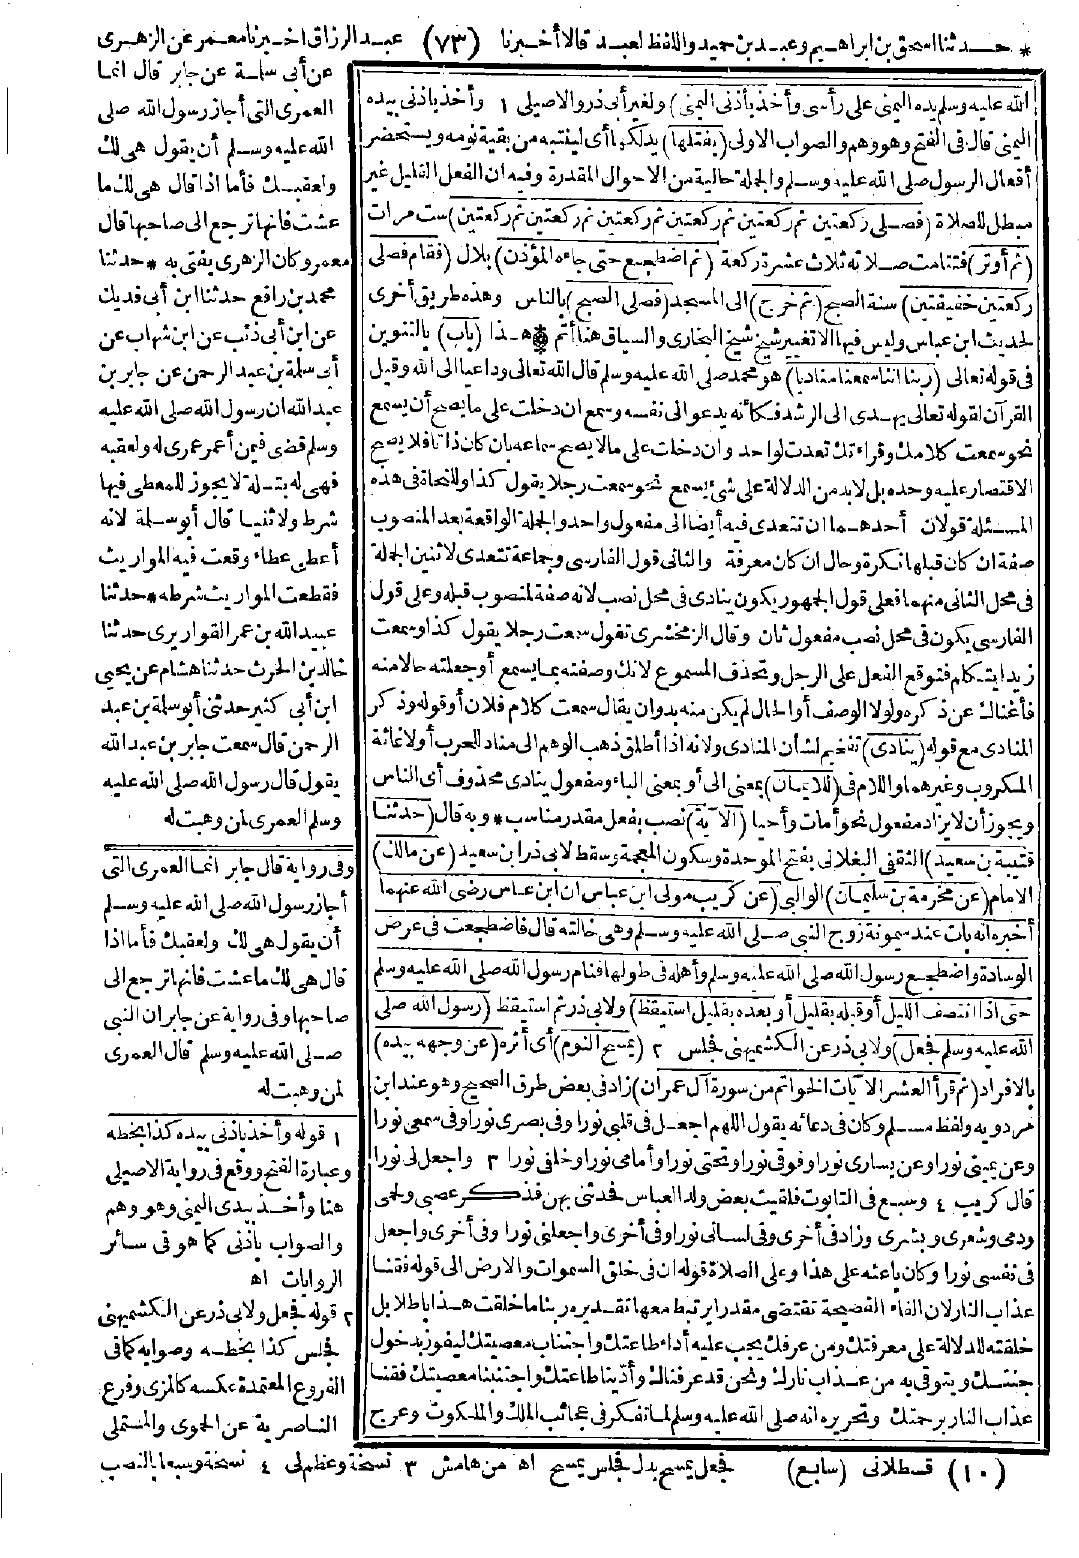 * حدثنا اسحق بن ابراهيم وعبد بن حميد واللفظ لعبد قالا أخبرنا (٧٣) عبد الرزاق اخبرنا معمر عن الزهرى
عن أبى سلمة عن جابر قال انما
العمرى التى أجاز رسول الله صلى
الله عليه وسلم أن يقول هى لك
ولعقبك فأما اذا قال هى لك ما
عشت فانها ترجع الى صاحبها قال
معمر وكان الزهرى يفتى به * حدثنا
محمد بن رافع حدثنا ابن أبى فديك
عن ابن أبى ذئب عن ابن شهاب عن
أبى سلمة بن عبد الرحمن عن جابر بن
عبد الله ان رسول الله صلى الله عليه
وسلم قضى فيمن أعمر عمرى له ولعقبه
فهى له بتلة لا يجوز للمعطى فيها
شرط ولا ثنيا قال أبو سلمة لانه
أعطى عطاء وقعت فيه المواريث
فقطعت المواريث شرطه * حدثنا
عبيد الله بن عمر القواريرى حدثنا
خالد بن الحرث حدثنا هشام عن يحيى
ابن أبى كثير حدثنى أبو سلمة بن عبد
الرحمن قال سمعت جابر بن عبد الله
يقول قال رسول الله صلى الله عليه
وسلم العمرى لمن وهبت له
وفى رواية قال جابر انما العمرى التى
أجاز رسول الله صلى الله عليه وسلم
أن يقول هى لك ولعقبك فأما اذا
قال هى لك ما عشت فانها ترجع الى
صاحبها وفى رواية عن جابر ان النبى
صلى الله عليه وسلم قال العمرى
لمن وهبت له
الله عليه وسلم يده اليمنى على رأسى وأخذ بأذنى اليمنى) ولغير أبى ذر والاصيلى ١ وأخذ باذنى بيده
اليمنى قال فى الفتح وهو وهم والصواب الاولى (يفتلها) يدلكها أى لينتبه من بقية نومه ويستحضر
أفعال الرسول صلى الله عليه وسلم والجملة حالية من الاحوال المقدرة وفيه ان الفعل القليل غير
مبطل للصلاة (فصلى ركعتين ثم ركعتين ثم ركعتين ثم ركعتين ثم ركعتين ثم ركعتين) ست مرات
(ثم أوتر) فتتامت صلاته ثلاث عشرة ركعة (ثم اضطجع حتى جاءه المؤذن) بلال (فقام فصلى
ركعتين خفيفتين) سنة الصبح (ثم خرج) الى المسجد (فصلى الصبح) بالناس وهذه طريق أخرى
لحديث ابن عباس وليس فيها الا تغيير شيخ شيخ البخارى والسياق هنا أتم * هذا (باب) بالتنوين
فى قوله تعالى (ربنا اننا سمعنا مناديا) هو محمد صلى الله عليه وسلم قال الله تعالى وداعيا الى الله وقيل
القرآن لقوله تعالى يهدى الى الرشد فكأنه يدعو الى نفسه وسمع ان دخلت على ما يصح أن يسمع
نحو سمعت كلامك وقراءتك تعدت لواحد وان دخلت على ما لا يصح سماعه بان كان ذاتا فلا يصح
الاقتصار عليه وحده بل لابد من الدلالة على شئ يسمع نحو سمعت رجلا يقول كذا وللنحاة فى هذه
المسئلة قولان أحدهما ان تتعدى فيه أيضا الى مفعول واحد والجملة الواقعة بعد المنصوب
صفة ان كان قبلها نكرة وحال ان كان معرفة والثانى قول الفارسى وجماعة تتعدى لاثنين الجملة
فى محل الثانى منهما فعلى قول الجمهور يكون ينادى فى محل نصب لانه صفة لمنصوب قبله وعلى قول
الفارسى يكون فى محل نصب مفعول ثان وقال الزمخشرى تقول سمعت رجلا يقول كذا وسمعت
زيدا يتكلم فتوقع الفعل على الرجل وتحذف المسموع لانك وصفته بما يسمع أو جعلته حالا منه
فأغناك عن ذكره ولولا الوصف أو الحال لم يكن منه بد وان يقال سمعت كلام فلان أو قوله وذكر
المنادى مع قوله (ينادى) تفخيم لشأن المنادى ولانه اذا أطلق ذهب الوهم الى مناد للحرب أو لاغاثة
المكروب وغيرهما واللام فى (للايمان) بمعنى الى أو بمعنى الباء ومفعول ينادى محذوف أى الناس
ويجوز أن لا يراد مفعول نحو أمات وأحيا (الآية) نصب بفعل مقدر مناسب * وبه قال (حدثنا
قتيبة بن سعيد) الثقفى البغلانى بفتح الموحدة وسكون المعجمة وسقط لابى ذر ابن سعيد (عن مالك)
الامام (عن مخرمة بن سليمان) الوالبى (عن كريب مولى ابن عباس ان ابن عباس رضى الله عنهما
أخبره انه بات عند ميمونة زوج النبى صلى الله عليه وسلم وهى خالته قال فاضطجعت فى عرض
الوسادة واضطجع رسول الله صلى الله عليه وسلم وأهله فى طولها فنام رسول الله صلى الله عليه وسلم
حتى اذا انتصف الليل أو قبله بقليل أو بعده بقليل استيقظ) ولابى ذر ثم استيقظ (رسول الله صلى
الله عليه وسلم فجعل) ولابى ذر عن الكشميهنى فجلس ٢ (يمسح النوم) أى أثره (عن وجهه بيده)
بالافراد (ثم قرأ العشر الآيات الخواتم من سورة آل عمران) زاد فى بعض طرق الصحيح وهو عند ابن
مردويه ولفظ مسلم وكان فى دعائه يقول اللهم اجعل فى قلبى نورا وفى بصرى نورا وفى سمعى نورا
وعن يمينى نورا وعن يسارى نورا وفوقى نورا وتحتى نورا وأمامى نورا وخلفى نورا ٣ واجعل لى نورا
قال كريب ٤ وسبع فى التابوت فلقيت بعض ولد العباس فحدثنى بهن فذكر عصبى ولحمى
ودمى وشعرى وبشرى وزاد فى أخرى وفى لسانى نورا وفى أخرى واجعلنى نورا وفى أخرى واجعل
فى نفسى نورا وكان باعثه على هذا وعلى الصلاة قوله ان فى خلق السموات والارض الى قوله فقنا
عذاب النار لان الفاء الفصيحة تقتضى مقدرا يرتبط معها تقديره ربنا ما خلقت هذا باطلا بل
خلقته للدلالة على معرفتك ومن عرفك يجب عليه أداء طاعتك واجتناب معصيتك ليفوز بدخول
جنتك ويتوقى به من عذاب نارك ونحن قد عرفناك وأدينا طاعتك واجتنبنا معصيتك فقنا
عذاب النار برحمتك وتحريره انه صلى الله عليه وسلم لما تفكر فى عجائب الملك والملكوت وعرج
١ قوله وأخذ باذنى بيده كذا بخطه
وعبارة الفتح ووقع فى رواية الاصيلى
هنا وأخذ بيدى اليمنى وهو وهم
والصواب بأذنى كما هو فى سائر
الروايات اه
٢ قوله فجعل ولابى ذر عن الكشميهنى
فجلس كذا بخطه وصوابه كما فى
الفروع المعتمدة عكسه كالمزى وفرع
الناصرية عن الحموى والمستملى
فجعل يمسح بدل فجلس يمسح اه من هامش ٣ نسخة وعظم لى ٤ نسخة وسبعا بالنصب
(١٠) قسطلانى (سابع)